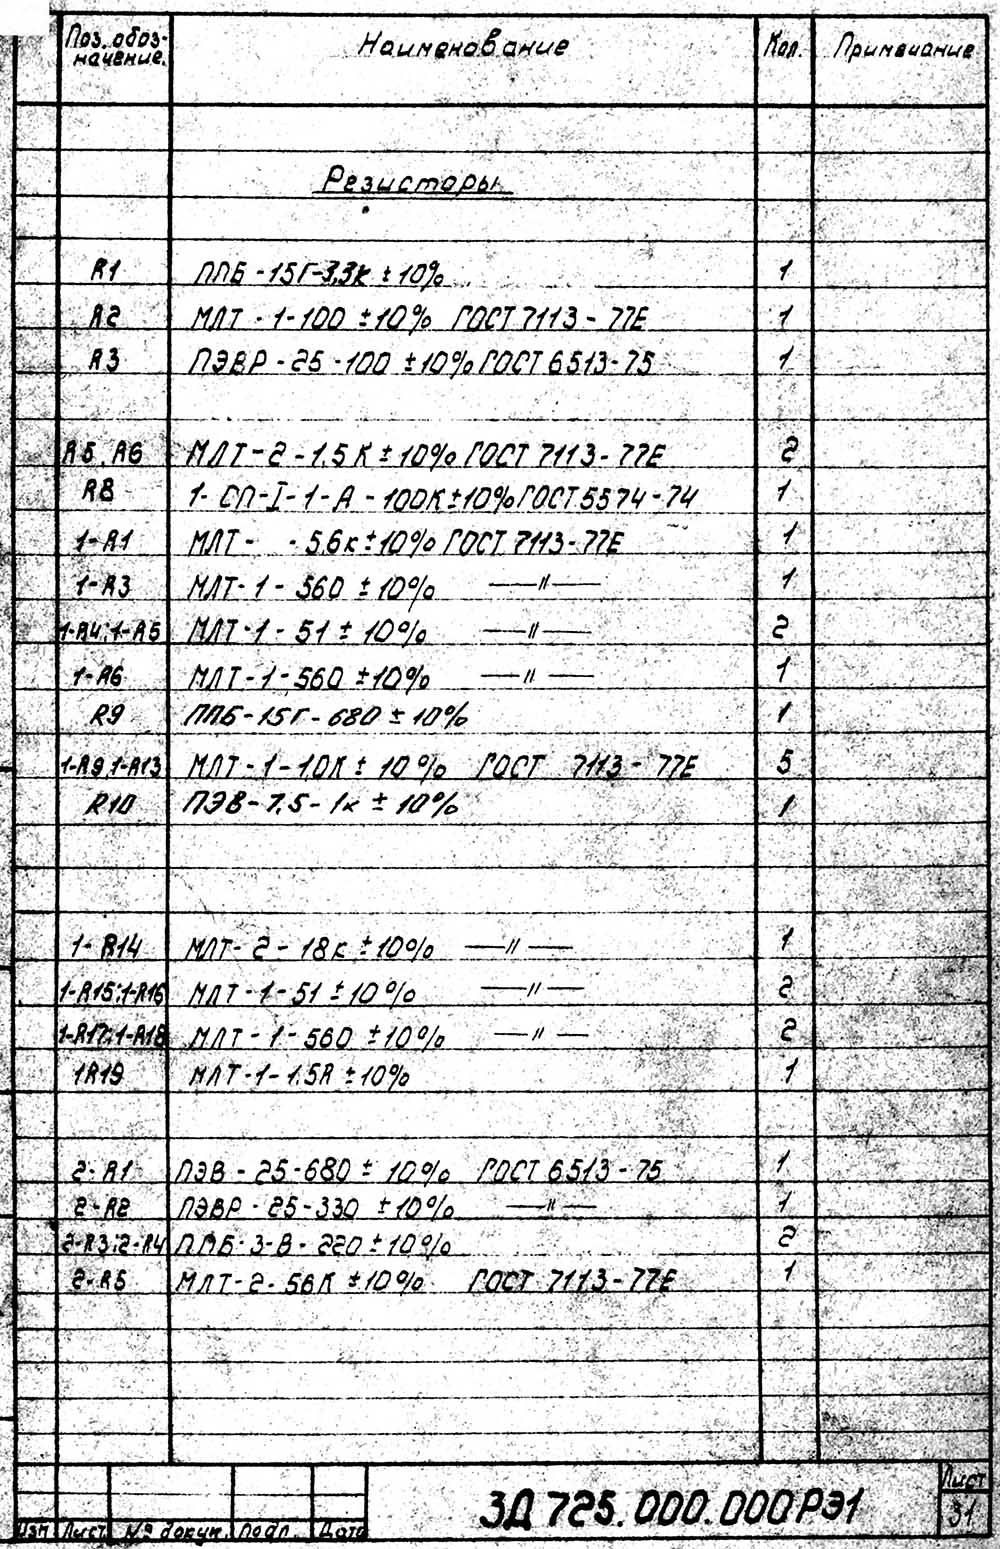 Поз. обоз- Наименование Кол. Примечание
начение.
Резисторы
R1 ППБ-15Г-3,3к ±10% 1
R2 МЛТ-1-100 ±10% ГОСТ 7113-77Е 1
R3 ПЭВР-25-100 ±10% ГОСТ 6513-75 1
R5, R6 МЛТ-2-1.5К ±10% ГОСТ 7113-77Е 2
R8 1-СП-I-1-А-100К ±10% ГОСТ 5574-74 1
1-R1 МЛТ- -5,6к ±10% ГОСТ 7113-77Е 1
1-R3 МЛТ-1-560 ±10% —"— 1
1-R4;1-R5 МЛТ-1-51 ±10% —"— 2
1-R6 МЛТ-1-560 ±10% —"— 1
R9 ППБ-15Г-680 ±10% 1
1-R9,1-R13 МЛТ-1-1,0К ±10% ГОСТ 7113-77Е 5
R10 ПЭВ-7,5-1к ±10% 1
1-R14 МЛТ-2-18к ±10% —"— 1
1-R15;1-R16 МЛТ-1-51 ±10% —"— 2
1-R17;1-R18 МЛТ-1-560 ±10% —"— 2
1R19 МЛТ-1-1.5К ±10% 1
2-R1 ПЭВ-25-680 ±10% ГОСТ 6513-75 1
2-R2 ПЭВР-25-330 ±10% —"— 1
2-R3;2-R4 ППБ-3-В-220 ±10% 2
2-R5 МЛТ-2-56К ±10% ГОСТ 7113-77Е 1
Изм Лист № докум. Подп. Дата 3Д 725.000.000РЭ1 Лист
31